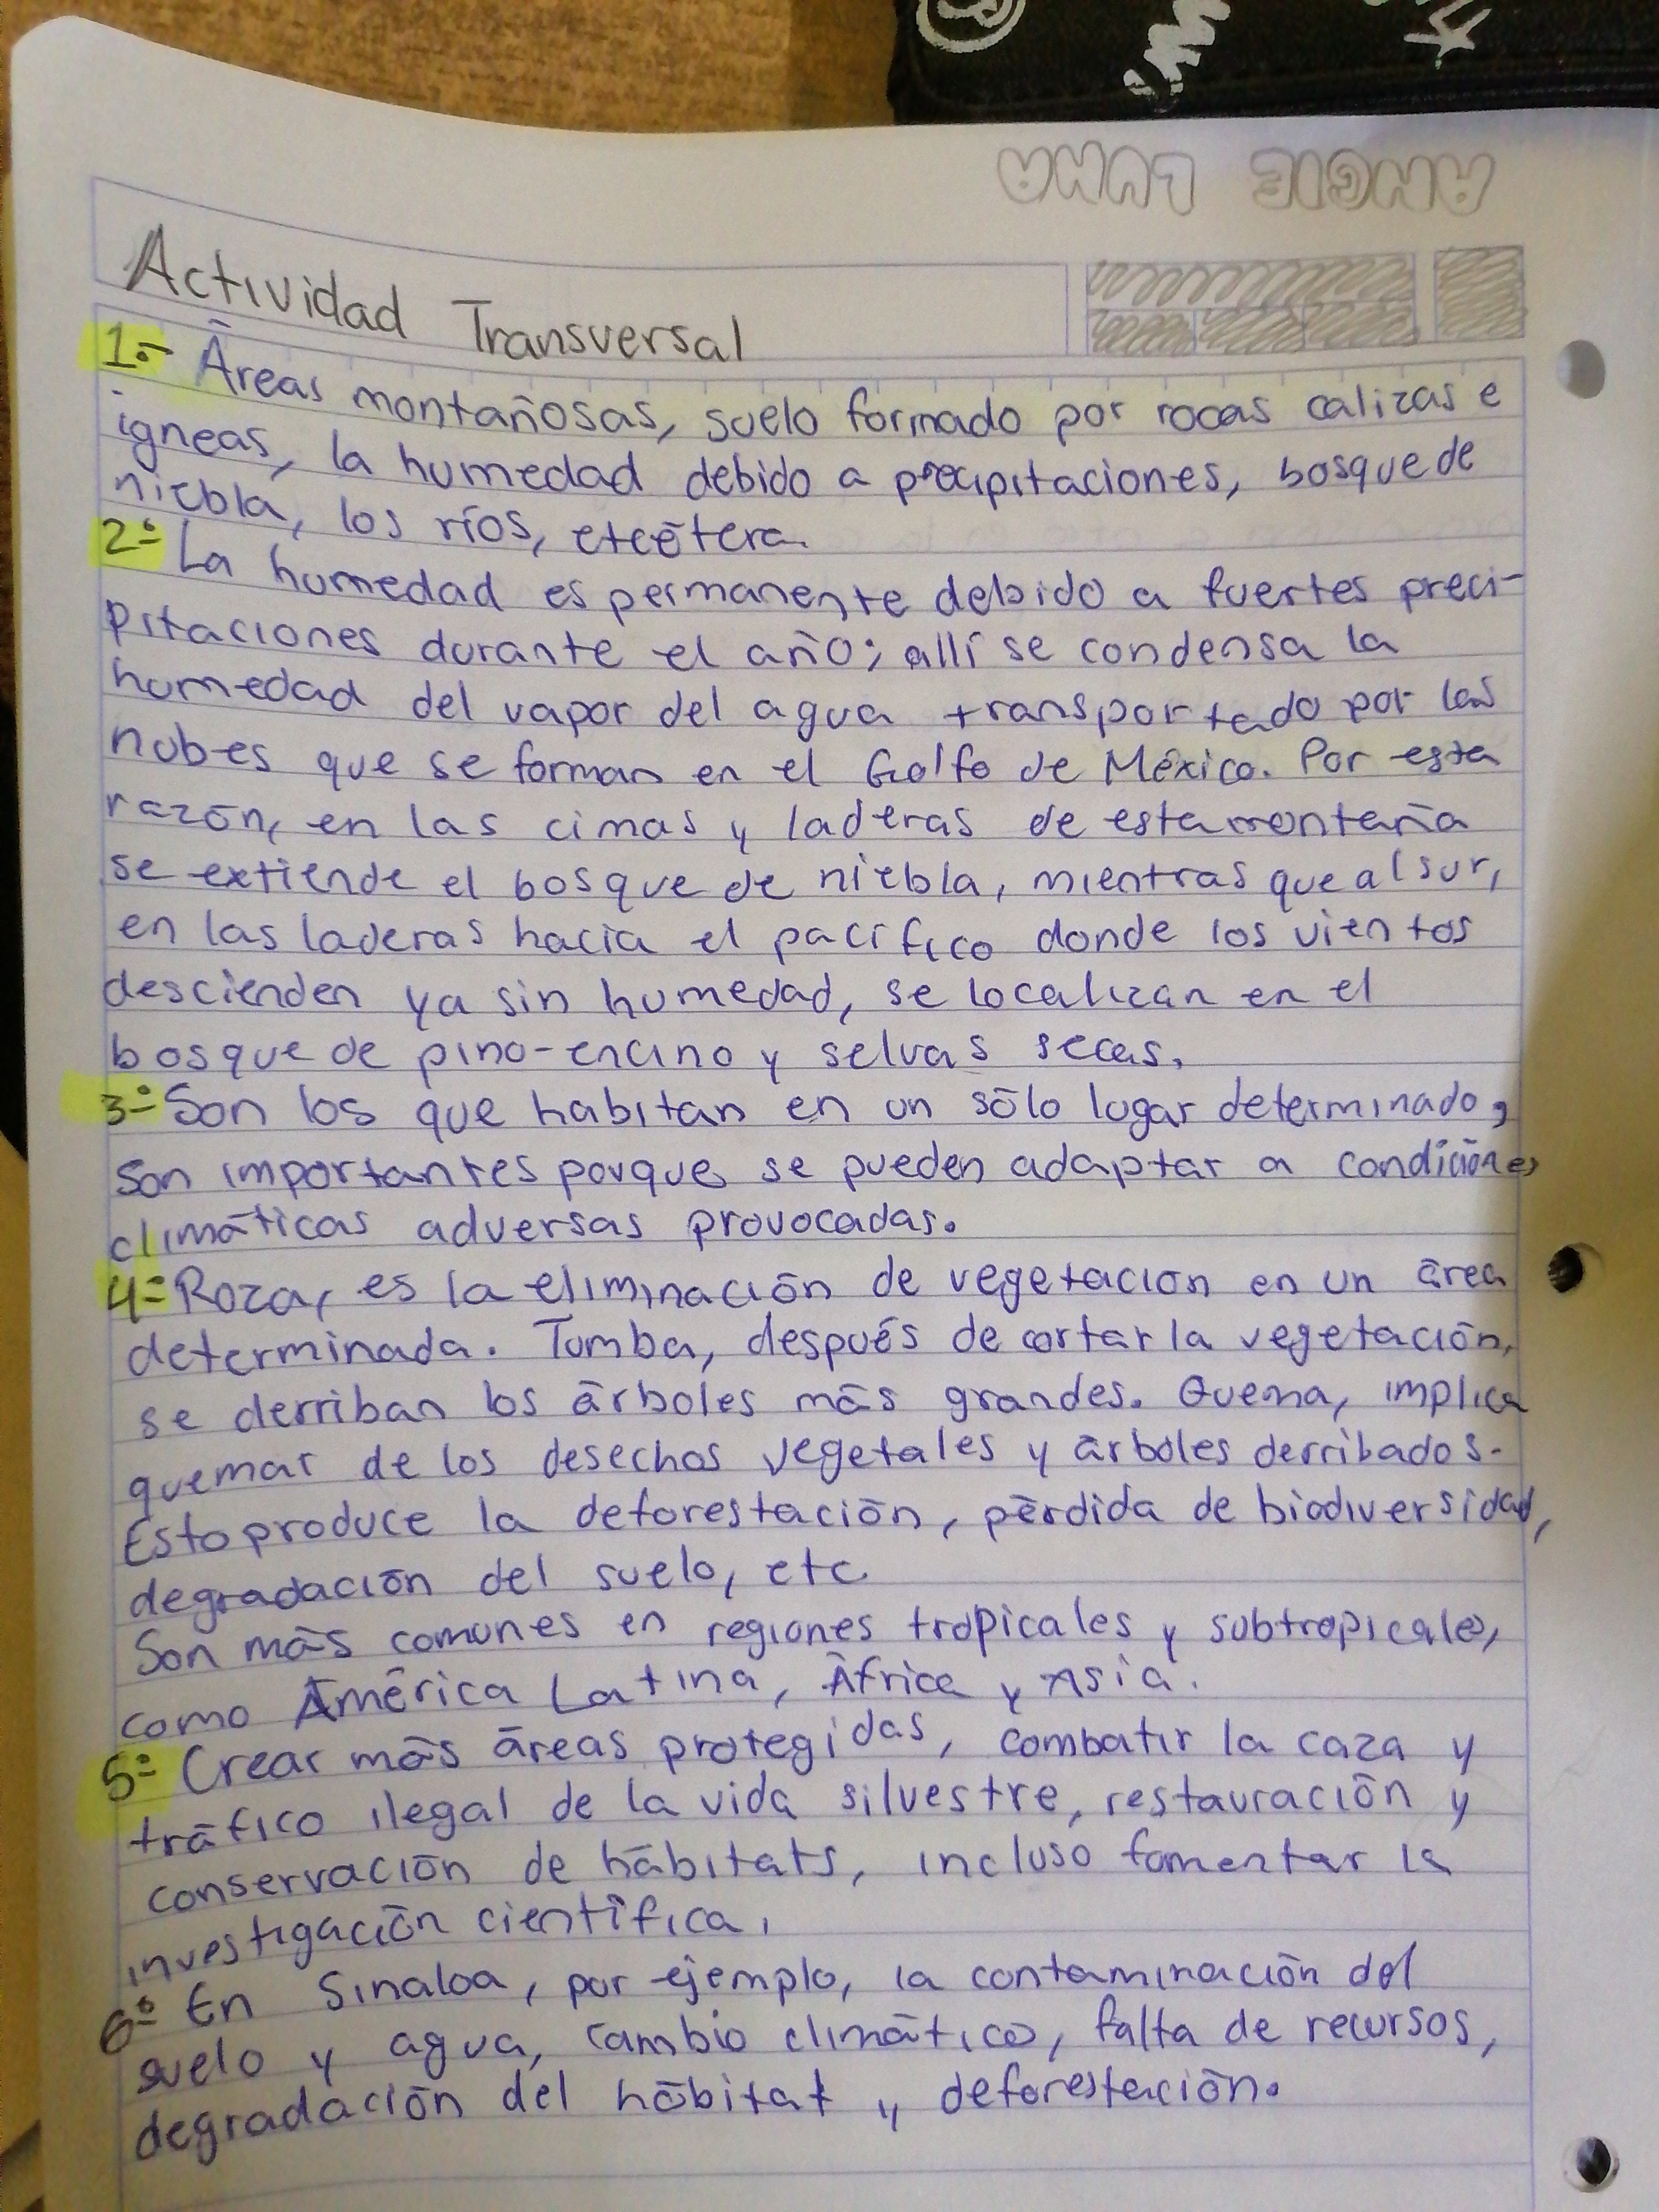 ANGIE LUNA
Actividad Transversal
1.- Áreas montañosas, suelo formado por rocas calizas e
igneas, la humedad debido a precipitaciones, bosque de
niebla, los ríos, etcétera.
2.- La humedad es permanente debido a fuertes preci-
pitaciones durante el año; allí se condensa la
humedad del vapor del agua transportado por las
nubes que se forman en el Golfo de México. Por esta
razón, en las cimas y laderas de esta montaña
se extiende el bosque de niebla, mientras que al sur,
en las laderas hacia el pacífico donde los vientos
descienden ya sin humedad, se localizan en el
bosque de pino-encino y selvas secas.
3.- Son los que habitan en un sólo lugar determinado,
son importantes porque se pueden adaptar a condiciónes
climáticas adversas provocadas.
4.- Roza, es la eliminación de vegetacion en un área
determinada. Tumba, después de cortar la vegetación,
se derriban los árboles más grandes. Quema, implica
quemar de los desechos vegetales y árboles derribados.
Esto produce la deforestación, pérdida de biodiversidad,
degradación del suelo, etc.
Son más comunes en regiones tropicales y subtropicales,
como América Latina, África y Asia.
5.- Crear más áreas protegidas, combatir la caza y
tráfico ilegal de la vida silvestre, restauración y
conservación de hábitats, incluso fomentar la
investigación científica.
6.- En Sinaloa, por ejemplo, la contaminación del
suelo y agua, cambio climático, falta de recursos,
degradación del hábitat y deforestación.